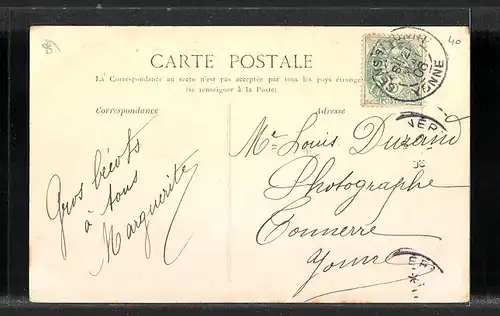 40
CARTE POSTALE
La Correspondance au recto n'est pas acceptée par tous les pays étrangers
(se renseigner à la Poste)
Correspondance
Adresse
Gros bécots
à tous
Marguerite
Mr Louis Durand
Photographe
Tonnerre
Yonne
YONNE